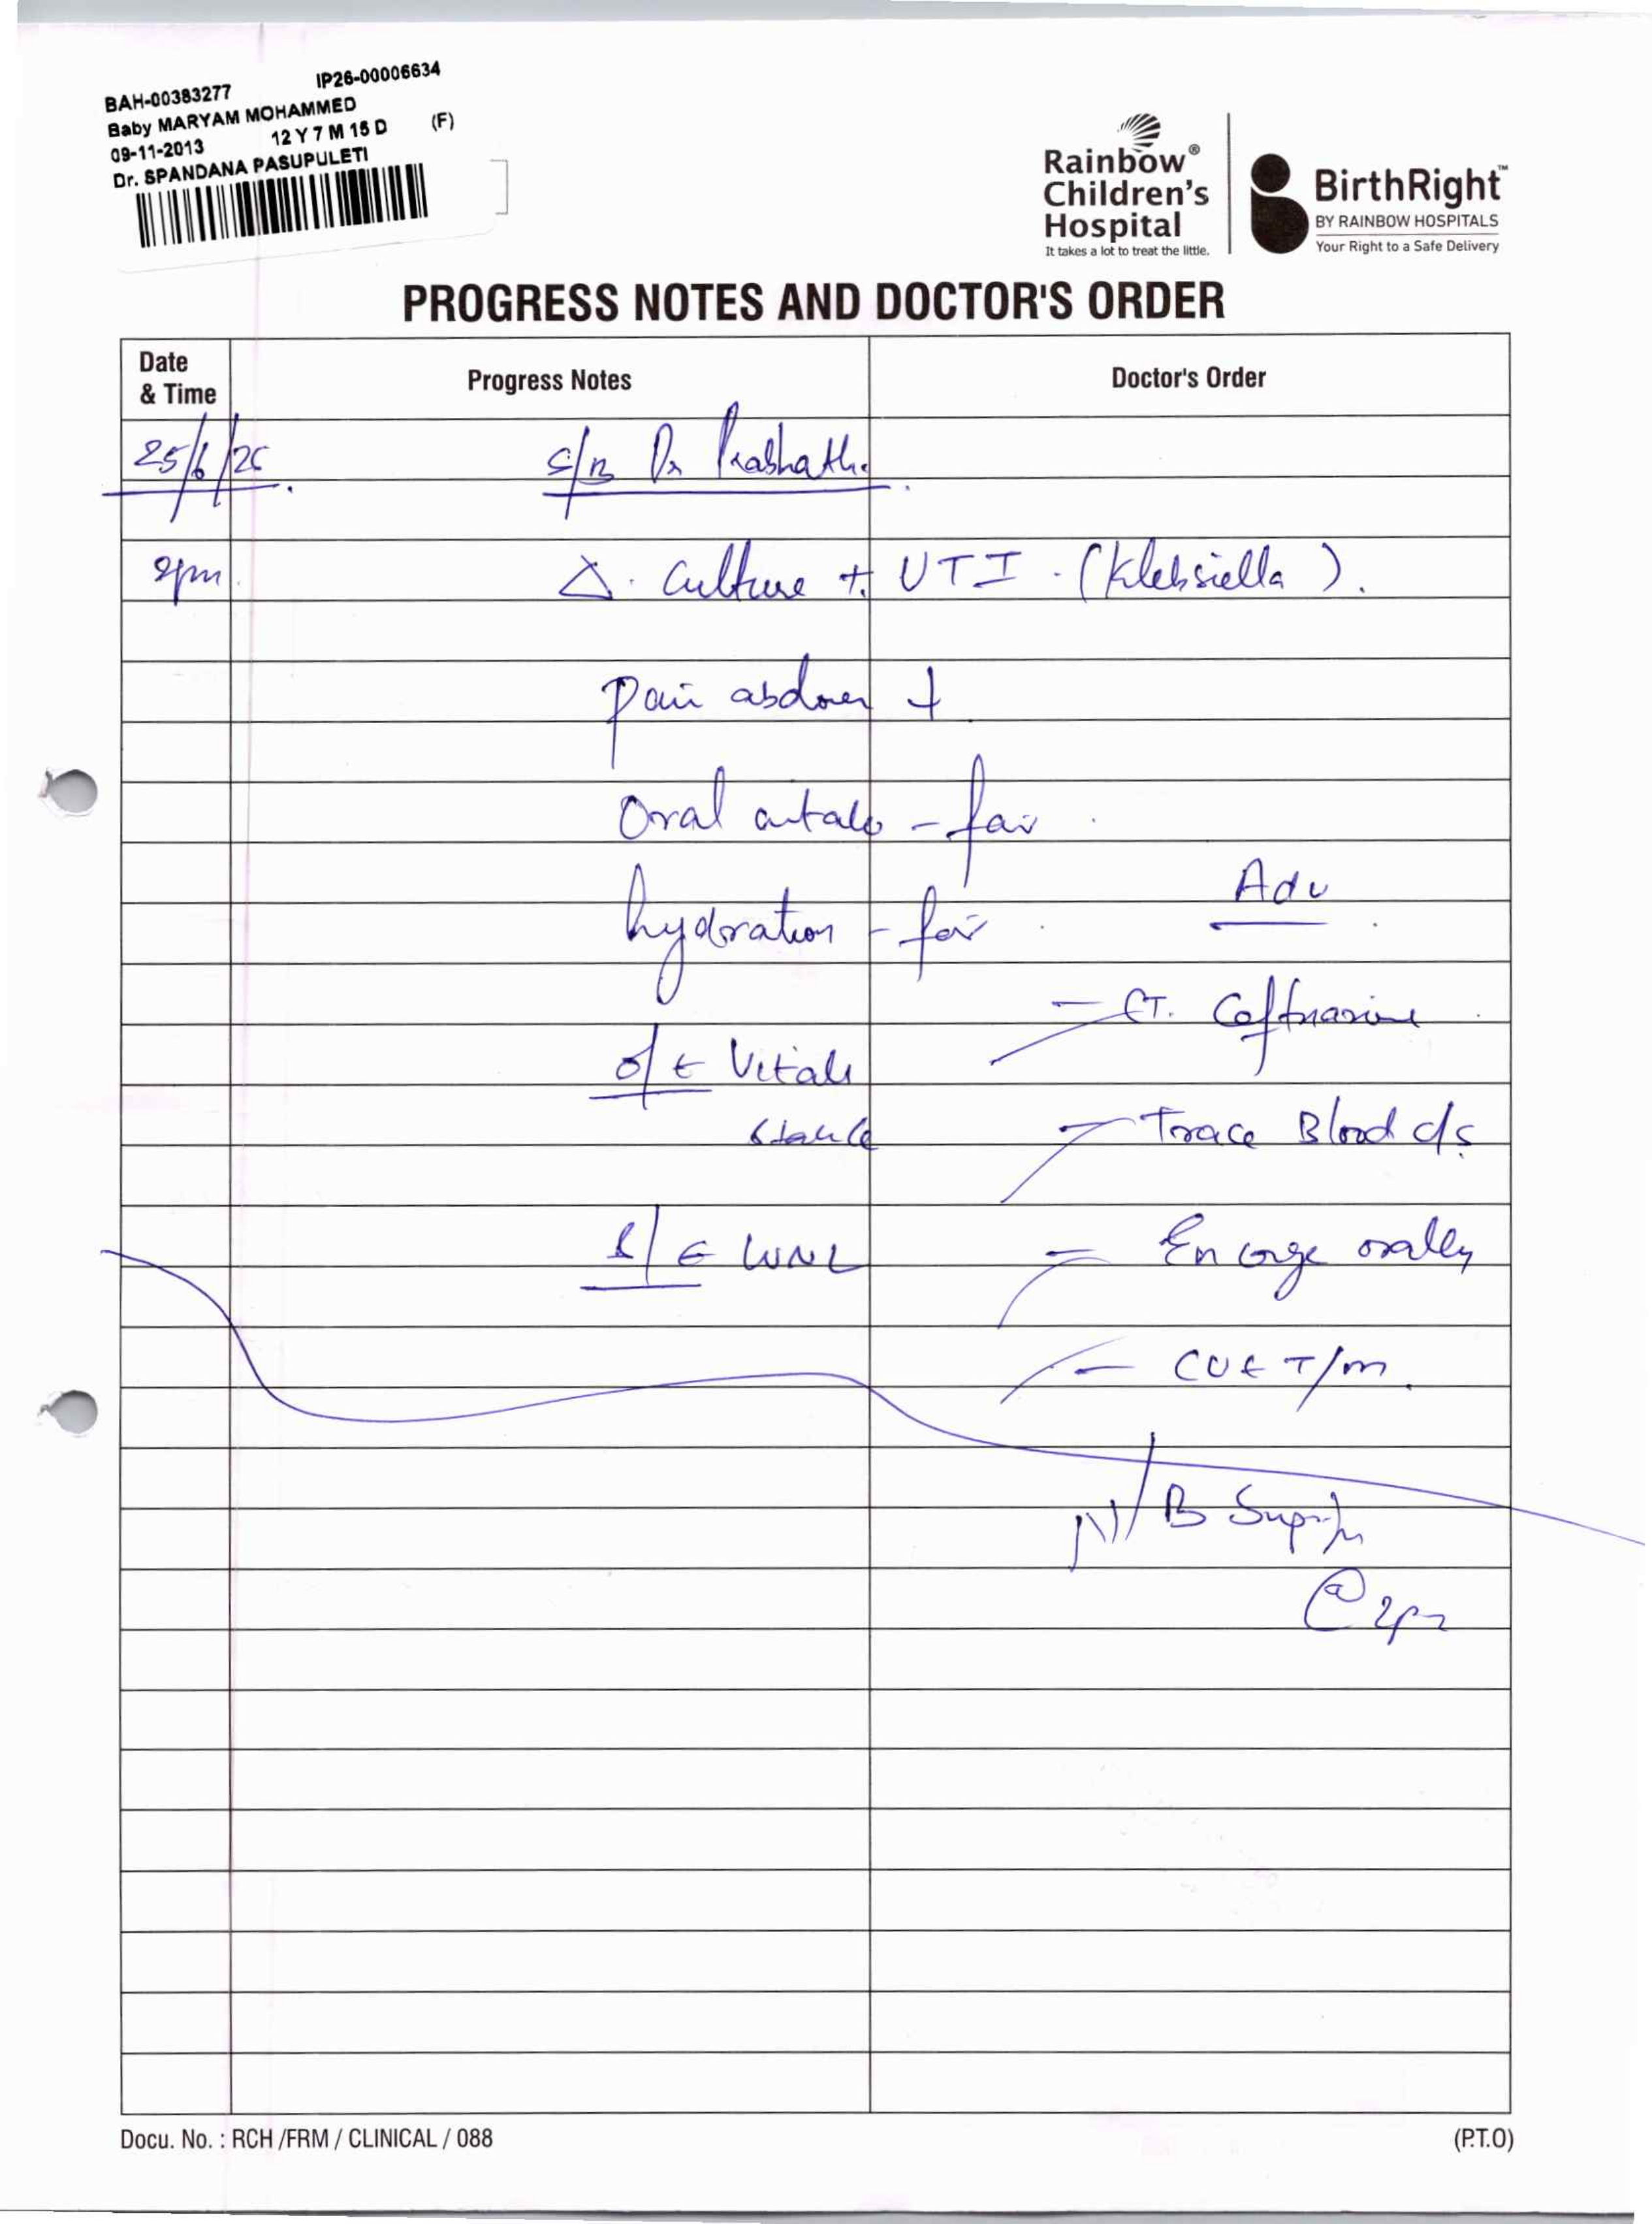 BAH-00383277 IP26-00006634
Baby MARYAM MOHAMMED
09-11-2013 12 Y 7 M 15 D (F)
Dr. SPANDANA PASUPULETI
Rainbow®
Children's
Hospital
It takes a lot to treat the little.
BirthRight™
BY RAINBOW HOSPITALS
Your Right to a Safe Delivery
PROGRESS NOTES AND DOCTOR'S ORDER
Date
& Time
Progress Notes
Doctor's Order
25/6/26 S/B Dr Prashath
2pm Δ. Culture + UTI. (Klebsiella).
Pain abdomen +
Oral intake - fair
hydration - fair
Adv
- CT.
O/E Vitals
stable
- Trace Blood c/s
S/E WNL
- Encorge orally
- CUE T/m.
N/B
@ 2pm
Docu. No. : RCH /FRM / CLINICAL / 088
(P.T.O)